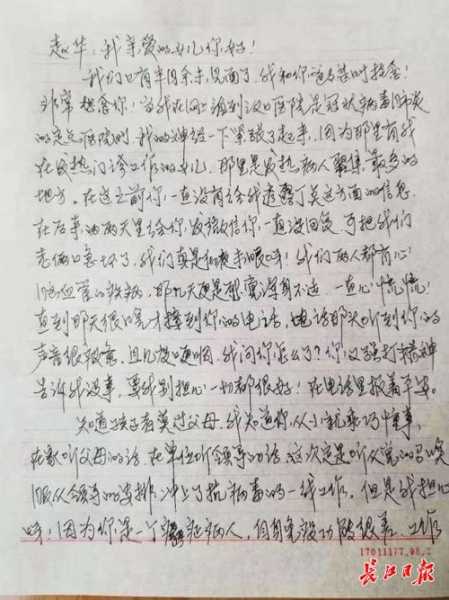 赵华：我亲爱的女儿你好！
我们已有半月余未见面了，我和你妈都时挂念！
非常想念你！当我在网上看到汉口医院是冠状病毒肺炎
的定点医院时，我的神经一下紧张了起来，因为那里有我
在发热门诊工作的女儿，那里是发热病人聚集最多的
地方。在这之前你一直没有给我透露了关这方面的信息，
在后来的两天里给你发微信你一直没回复，可把我们
老俩口急坏了，我们真是彻夜未眠呀！我们两人都有心
脑血管的疾病，那几天更是浑身不适，一直心慌慌！
直到那天很晚才接到你的电话，电话那头听到你的
声音很疲惫，且几度哽咽，我问你怎么了？你又强打精神
告诉我没事，要我别担心一切都很好！在电话里报着平安。
知道孩子者莫过父母，我知道你从小就乖巧懂事，
在家听父母的话，在单位听领导的话，这次定是听从党的召唤
服从领导的安排，冲上了抗病毒的一线工作。但是我担心
呀！因为你是一个病人，自身免疫功能很差，工作
17011177.08.2
长江日报